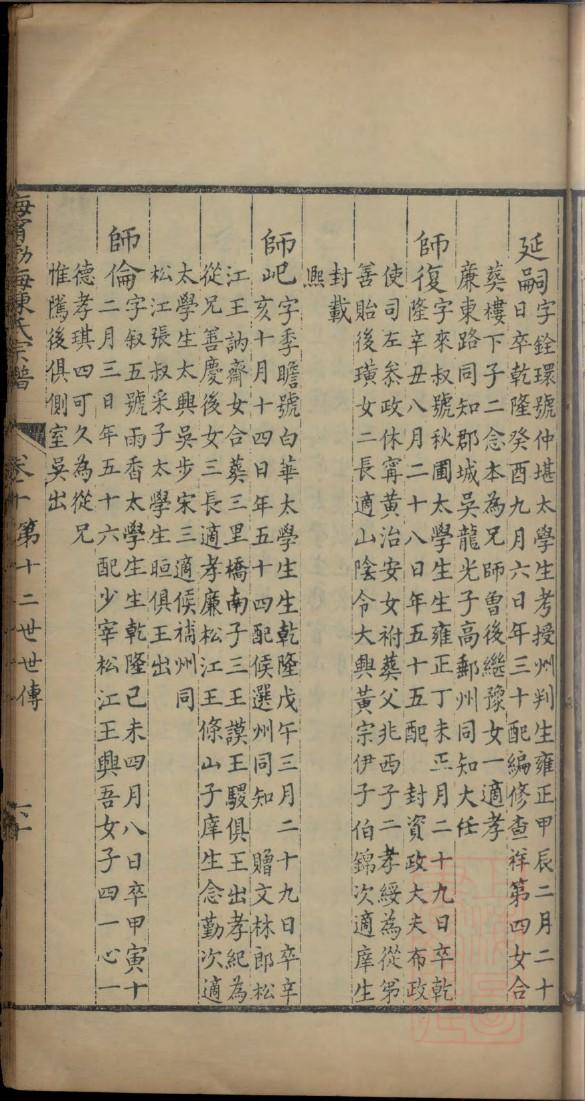 延嗣字銓環號仲堪太學生考授州判生雍正甲辰二月二十
日卒乾隆癸酉九月六日年三十配編修查祥第四女合
葵樓下子二念本為兄師曾後繼豫女一適孝
廉東路同知郡城吳龍光子高郵州同知大任
師復字來叔號秋圃太學生生雍正丁未正月二十九日卒乾
隆辛丑八月二十八日年五十五配 封資政大夫布政
使司左叅政休寧黃治安女祔葵父兆西子二孝綏為從弟
善貽後璜女二長適山陰令大興黃宗伊子伯錦次適庠生
封載
熙
師屺字季瞻號白華太學生生乾隆戊午三月二十九日卒辛
亥十月十四日年五十四配候選州同知 贈文林郎松
江王訥齋女合葵三里橋南子三王謨王駿俱王出孝紀為
從兄善慶後女三長適孝廉松江王條山子庠生念勤次適
太學生太興吳步宋三適候補州同
松江張叔采子太學生晅俱王出
師倫字叔五號雨香太學生生乾隆己未四月八日卒甲寅十
二月三日年五十六配少宰松江王興吾女子四一心一
德孝琪四可久為從兄
惟隲後俱側室吳出
海甯渤海陳氏宗譜 卷十 第十二世世傳